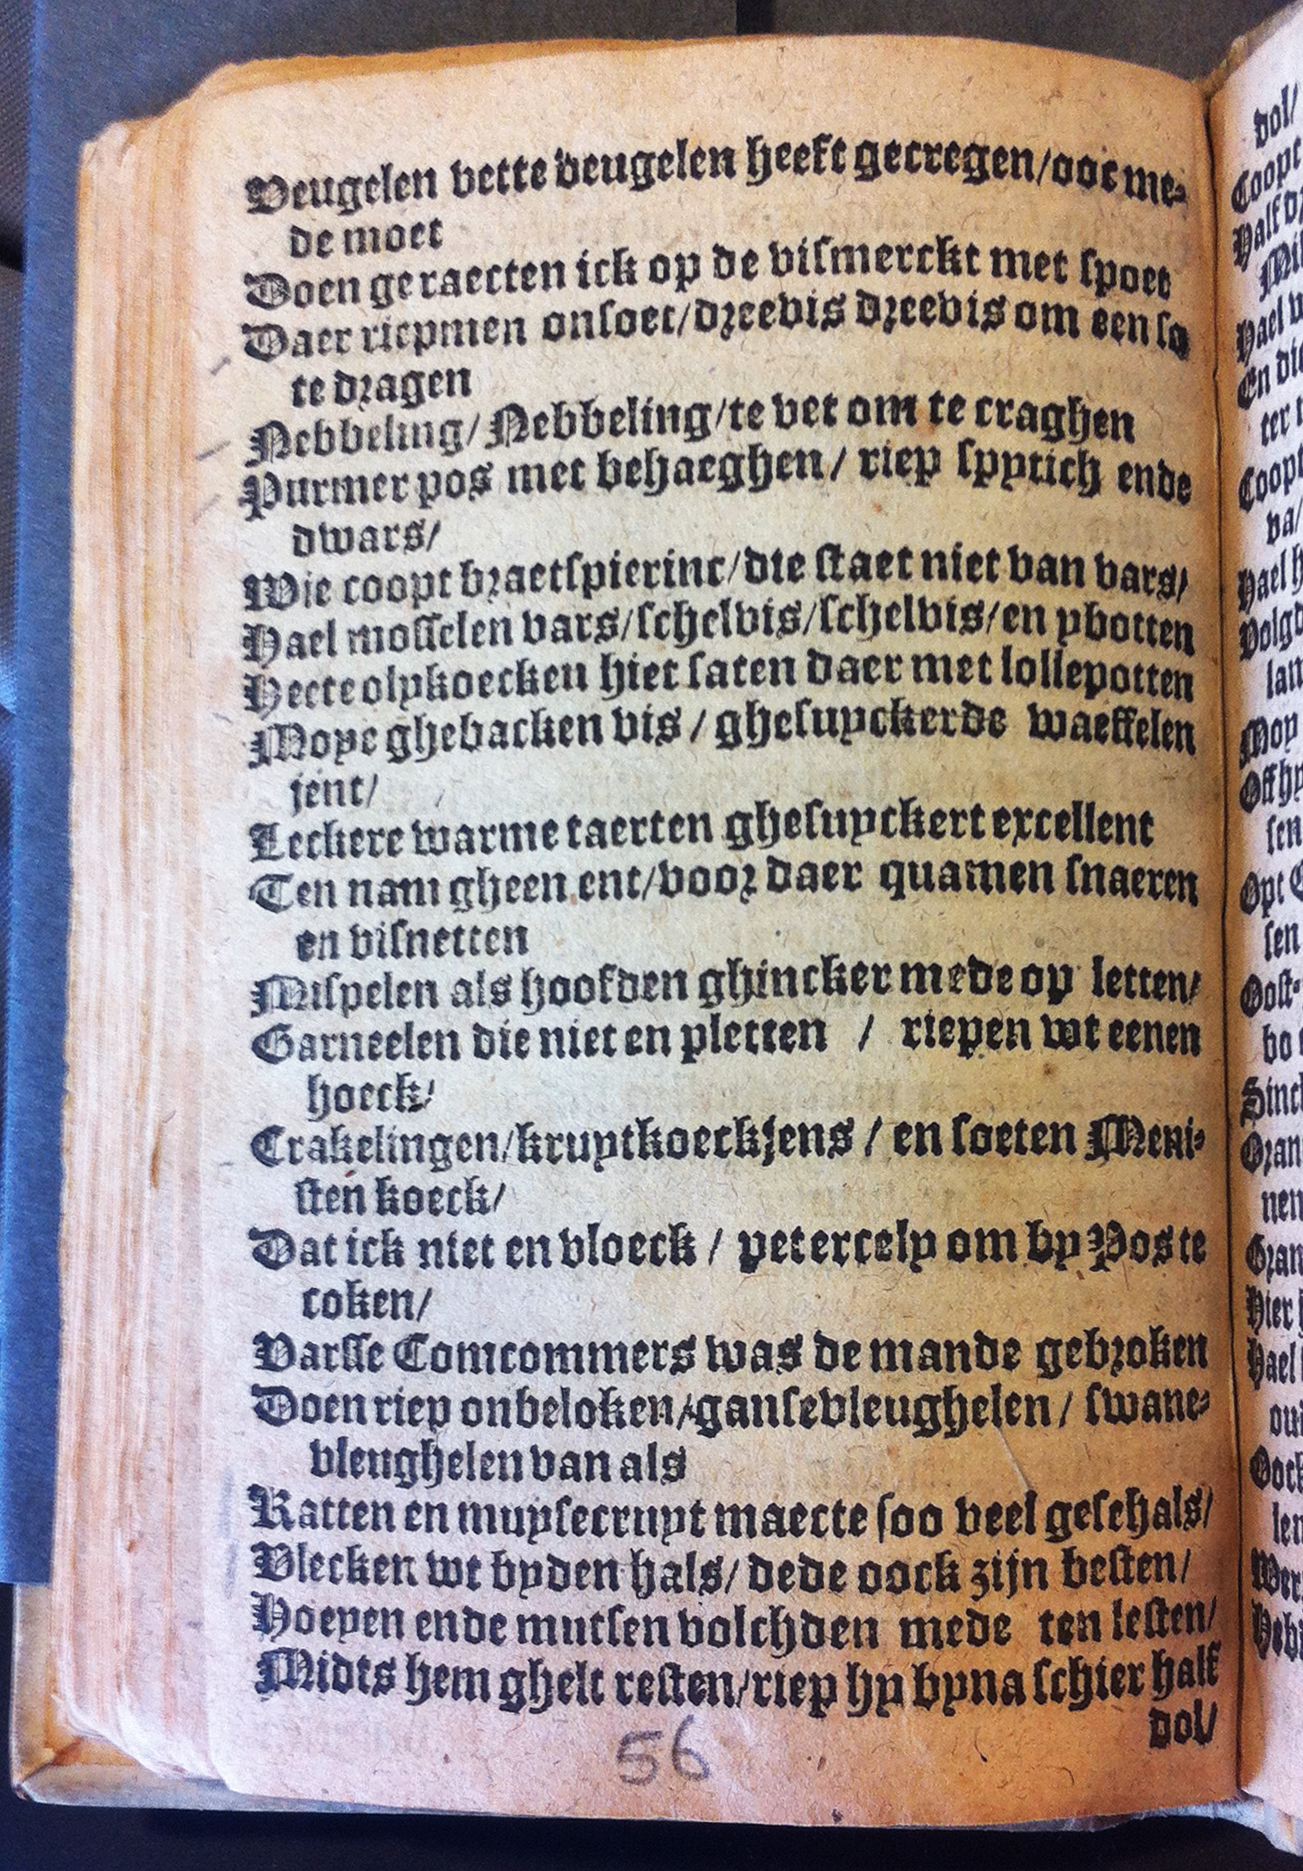 Veugelen vette veugelen heeft gecregen/ooc me-
de moet
Doen geraecten ick op de vismerckt met spoet
Daer riepmen onsoet/dreevis dreevis om een so
te dragen
Nebbeling/Nebbeling/te vet om te craghen
Purmer pos met behaeghen/ riep spytich ende
dwars/
Wie coopt braetspierinc/die staet niet van vars/
Hael mosselen vars/schelvis/schelvis/en ybotten
Heete olykoecken hiet saten daer met lollepotten
Moye ghebacken vis / ghesuyckerde waeffelen
jent/
Leckere warme taerten ghesuyckert excellent
Ten nam gheen ent/voor daer quamen snaeren
en visnetten
Mispelen als hoofden ghincker mede op letten/
Garneelen die niet en pletten / riepen wt eenen
hoeck/
Crakelingen/kruytkoeckjens / en soeten Meni-
sten koeck/
Dat ick niet en vloeck / petercely om by Pos te
coken/
Varsse Comcommers was de mande gebroken
Doen riep onbeloken/gansevleughelen/ swane-
vleughelen van als
Ratten en muysecruyt maecte soo veel geschals/
Vlecken wt byden hals/ dede oock zijn besten/
Hoeyen ende mutsen volchden mede ten lesten/
Midts hem ghelt resten/riep hy byna schier half
dol/
56
dol/
Half
Hael
En die
ter
va/
Hael
Volgd
Moy
sen
Opt
sen
Oost-
nen
Hier
Hael
len